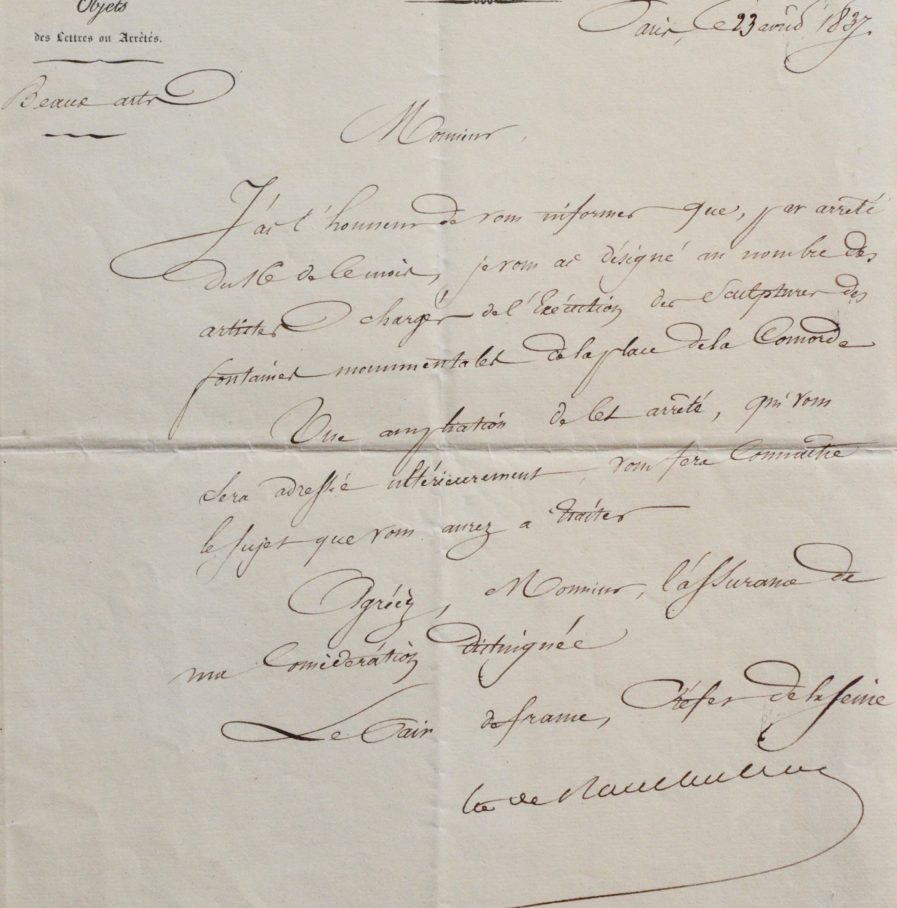 Objets
des Lettres ou Arrêtés.
Paris, le 23 avril 1837.
Beaux arts
Monsieur,
J'ai l'honneur de vous informer que, par arrêté
du 16 de ce mois, je vous ai désigné au nombre des
artistes chargés de l'Exécution des Sculptures des
fontaines monumentales de la place de la Concorde
Une ampliation de cet arrêté, qui vous
sera adressée ultérieurement vous fera Connaître
le sujet que vous aurez a traiter
Agréez, Monsieur, l'assurance de
ma Considération distinguée
Le Pair de france, Préfet de la Seine
Cte de Rambuteau